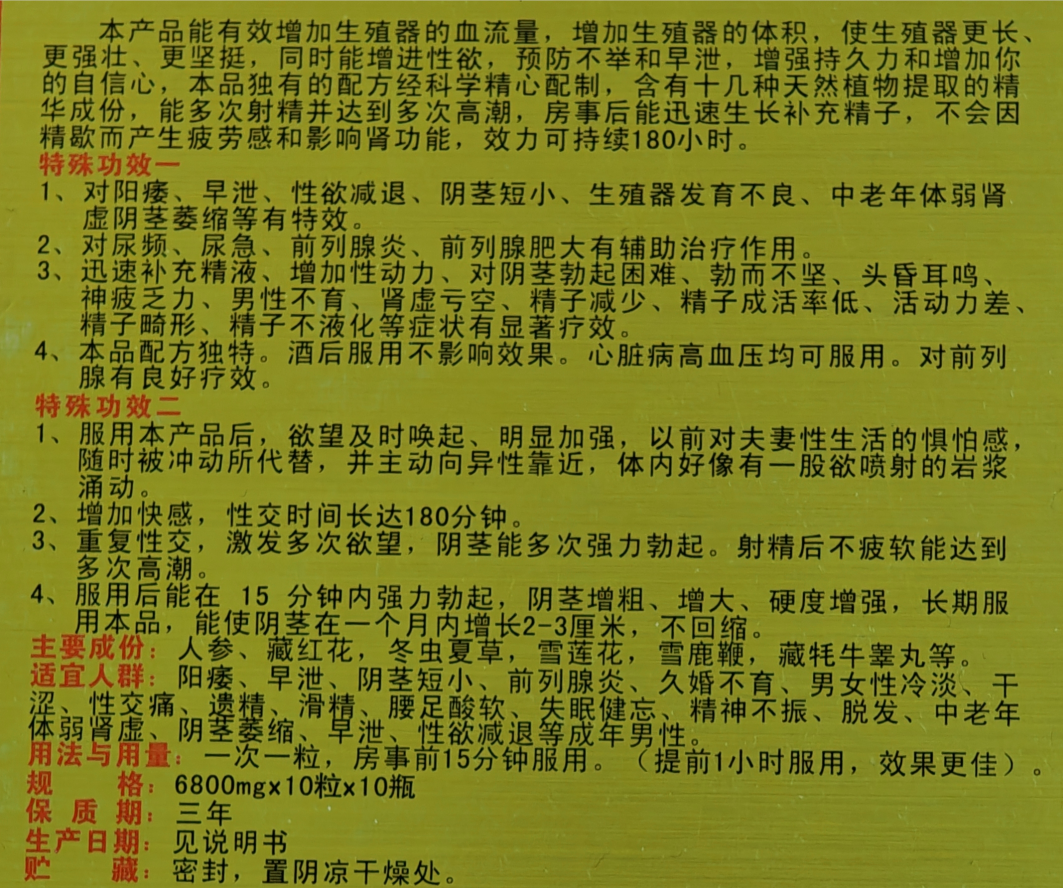 本产品能有效增加生殖器的血流量，增加生殖器的体积，使生殖器更长、
更强壮、更坚挺，同时能增进性欲，预防不举和早泄，增强持久力和增加你
的自信心，本品独有的配方经科学精心配制，含有十几种天然植物提取的精
华成份，能多次射精并达到多次高潮，房事后能迅速生长补充精子，不会因
精歇而产生疲劳感和影响肾功能，效力可持续180小时。
特殊功效一
1、对阳痿、早泄、性欲减退、阴茎短小、生殖器发育不良、中老年体弱肾
虚阴茎萎缩等有特效。
2、对尿频、尿急、前列腺炎、前列腺肥大有辅助治疗作用。
3、迅速补充精液、增加性动力、对阴茎勃起困难、勃而不坚、头昏耳鸣、
神疲乏力、男性不育、肾虚亏空、精子减少、精子成活率低、活动力差、
精子畸形、精子不液化等症状有显著疗效。
4、本品配方独特。酒后服用不影响效果。心脏病高血压均可服用。对前列
腺有良好疗效。
特殊功效二
1、服用本产品后，欲望及时唤起、明显加强，以前对夫妻性生活的惧怕感，
随时被冲动所代替，并主动向异性靠近，体内好像有一股欲喷射的岩浆
涌动。
2、增加快感，性交时间长达180分钟。
3、重复性交，激发多次欲望，阴茎能多次强力勃起。射精后不疲软能达到
多次高潮。
4、服用后能在 15 分钟内强力勃起，阴茎增粗、增大、硬度增强，长期服
用本品，能使阴茎在一个月内增长2-3厘米，不回缩。
主要成份：人参、藏红花，冬虫夏草，雪莲花，雪鹿鞭，藏牦牛睾丸等。
适宜人群：阳痿、早泄、阴茎短小、前列腺炎、久婚不育、男女性冷淡、干
涩、性交痛、遗精、滑精、腰足酸软、失眠健忘、精神不振、脱发、中老年
体弱肾虚、阴茎萎缩、早泄、性欲减退等成年男性。
用法与用量：一次一粒，房事前15分钟服用。（提前1小时服用，效果更佳）。
规 格：6800mg×10粒×10瓶
保 质 期：三年
生产日期：见说明书
贮 藏：密封，置阴凉干燥处。